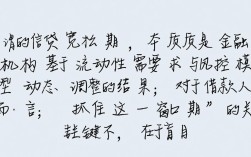 请的信贷宽松期，本质质是金融
机构基于流动性需求与风控模
型动态、调整的结果；对于借款人
而·言；抓住这一窗口期”的关
键键不，在于盲目